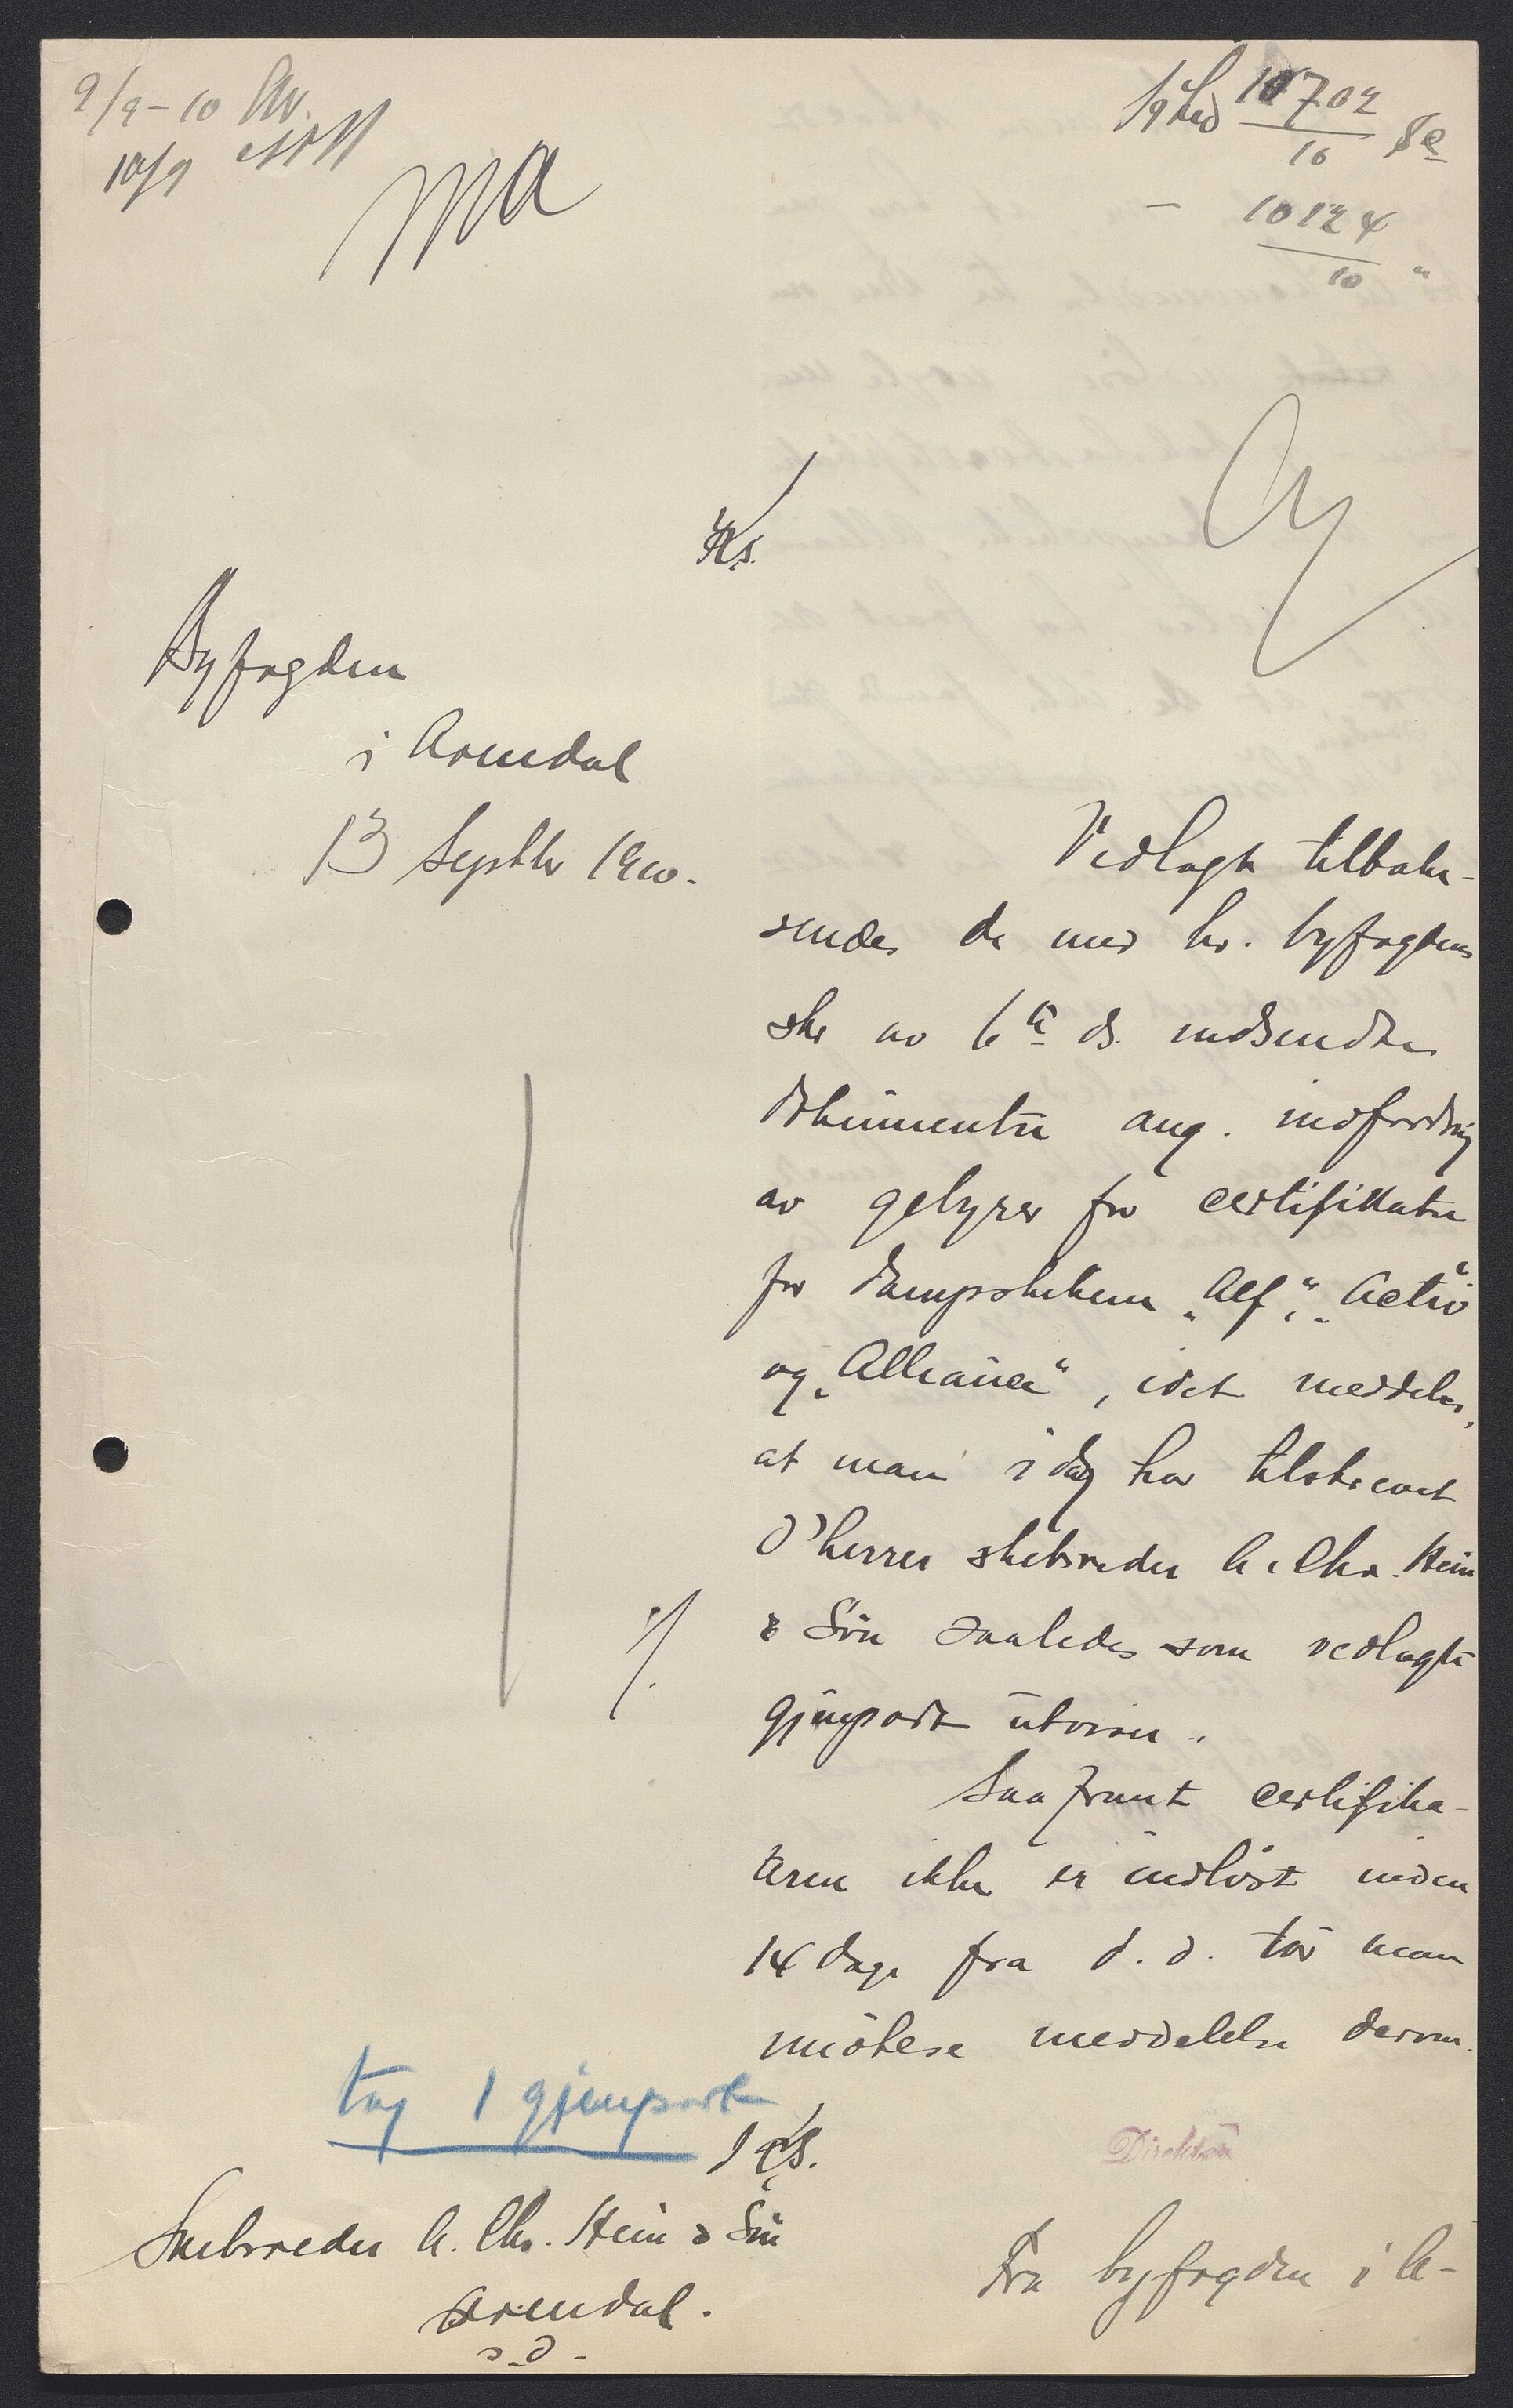 9/9-10
10/9
10702
16
10124
10 "
Ks.
Byfogden
i Arendal
13 Septbr 1910.
Vedlagt tilbake-
sendes de med hr. byfogdens
skr av 6te ds. indsendte
dokumenter ang. indfordring
av gebyrer for certifikater
for dampskibene „Alf“, „Activ“
og „Alliance“, idet meddeles,
at man i dag har tilskrevet
d'herrer skibsreder A. Chr. Hein
./. & Sön saaledes som vedlagte
gjenpart utviser.
Saafremt certifika-
terne ikke er indlöst inden
14 dage fra d. d. tör man
imötese meddelelse derom.
tag 1 gjenpart
Direktör
Ks.
Skibsreder A. Chr. Hein & Sön
Arendal.
s. d.
Fra byfogden i A-